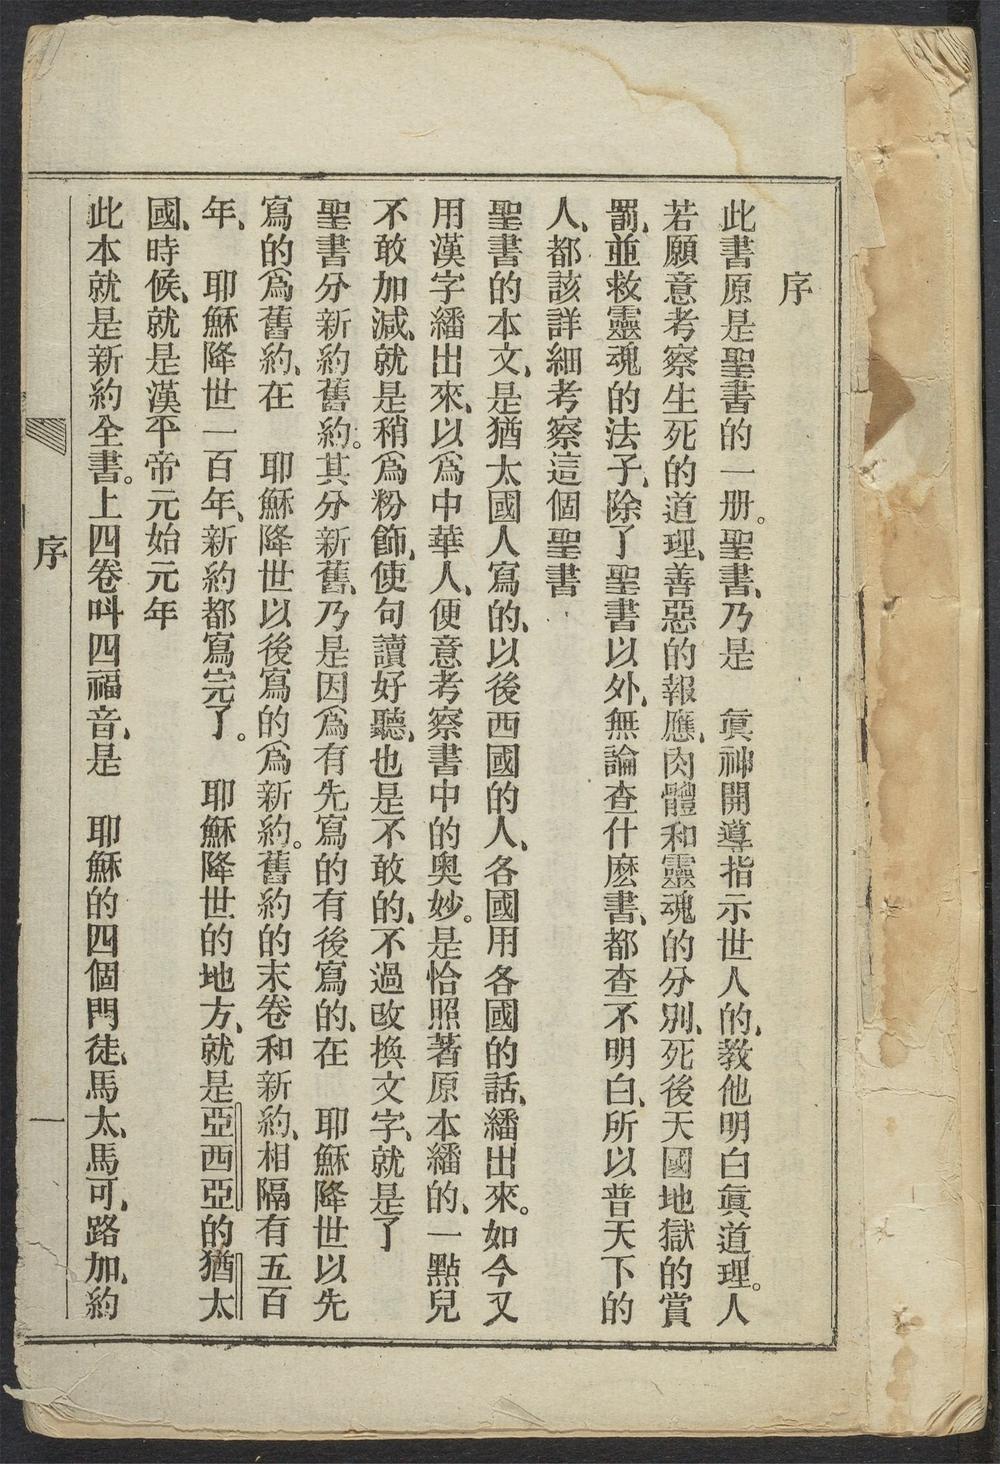 序
此書原是聖書的一册。聖書、乃是　眞神開導指示世人的、教他明白眞道理。人
若願意考察生死的道理、善惡的報應、肉體和靈魂的分別、死後天國地獄的賞
罰、並救靈魂的法子、除了聖書以外、無論查什麽書、都查不明白、所以普天下的
人、都該詳細考察這個聖書
聖書的本文、是猶太國人寫的、以後西國的人、各國用各國的話、繙出來。如今又
用漢字繙出來、以爲中華人、便意考察書中的奧妙。是恰照著原本繙的、一點兒
不敢加減、就是稍爲粉飾、使句讀好聽、也是不敢的、不過改換文字、就是了
聖書分新約舊約。其分新舊、乃是因爲有先寫的有後寫的、在　耶穌降世以先
寫的爲舊約、在　耶穌降世以後寫的爲新約。舊約的末卷和新約、相隔有五百
年、　耶穌降世一百年、新約都寫完了。　耶穌降世的地方、就是亞西亞的猶太
國、時候、就是漢平帝元始元年
此本就是新約全書。上四卷叫四福音、是　耶穌的四個門徒、馬太、馬可、路加、約
序
一